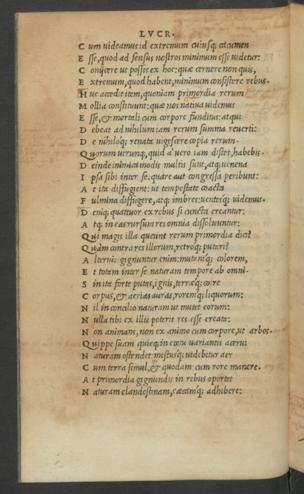 LVCR.
C um uideamus id extremum cuiusq; cacumen
E sse, quod ad sensus nostros minimum esse uidetur:
C onijcere ut possis ex hoc: quæ cernere non quis,
E xtremum, quod habent, minimum consistere rebus.
H uc accedit item, quoniam primordia rerum
M ollia constituunt: quæ nos natiua uidemus
E sse, & mortali cum corpore funditus: atqui
D ebeat ad nihilum iam rerum summa reuerti:
D e nihiloq; renata uigescere copia rerum.
Q uorum utrunq; quid a' uero iam distet, habebis.
D einde inimica modis multis sunt, atq; uenena
I psa sibi inter se: quare aut congressa peribunt:
A ut ita diffugient: ut tempestate coacta
F ulmina diffugere, atq; imbres: uentosq; uidemus.
D eniq; quattuor ex rebus si cuncta creantur:
A tq; in eas rursus res omnia dissoluuntur:
Q ui magis illa queunt rerum primordia dici?
Q uàm contra res illorum, retroq; putari?
A lternis gignuntur enim: mutantq; colorem,
E t totam inter se naturam tempore ab omni.
S in ita forte putes, ignis, terræq; coire
C orpus, & aerias auras, roremq; liquorum:
N il in concilio naturam ut mutet eorum:
N ulla tibi ex illis poterit res esse creata:
N on animans, non exanimo cum corpore, ut arbos.
Q uippe suam quicq; in cœtu uariantis acerui
N aturam ostendet: mistusq; uidebitur aer
C um terra simul, & quodam cum rore manere.
A t primordia gignundis in rebus oportet
N aturam clandestinam, cæcamq; adhibere: